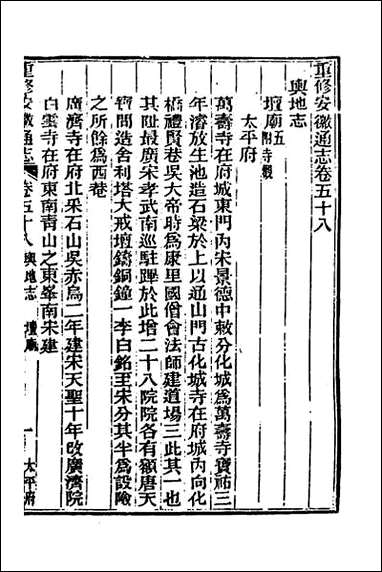 重修安徽通志卷五十八
輿地志
壇廟五附寺觀
太平府
萬壽寺在府城東門內宋景德中敕分化城爲萬壽寺寶祐三
年濬放生池造石梁於上以通山門古化城寺在府城內向化
橋禮賢巷吳大帝時爲康里國僧會法師建道場三此其一也
其阯最廣宋孝武南巡駐蹕於此增二十八院院各有額唐天
寶間造舍利塔大戒壇鑄銅鐘一李白銘至宋分其半爲設險
之所餘爲西巷
廣濟寺在府北采石山吳赤烏二年建宋天聖十年改廣濟院
白雲寺在府東南青山之東峯南宋建
重修安徽通志 卷五十八 輿地志 壇廟 一 太平府